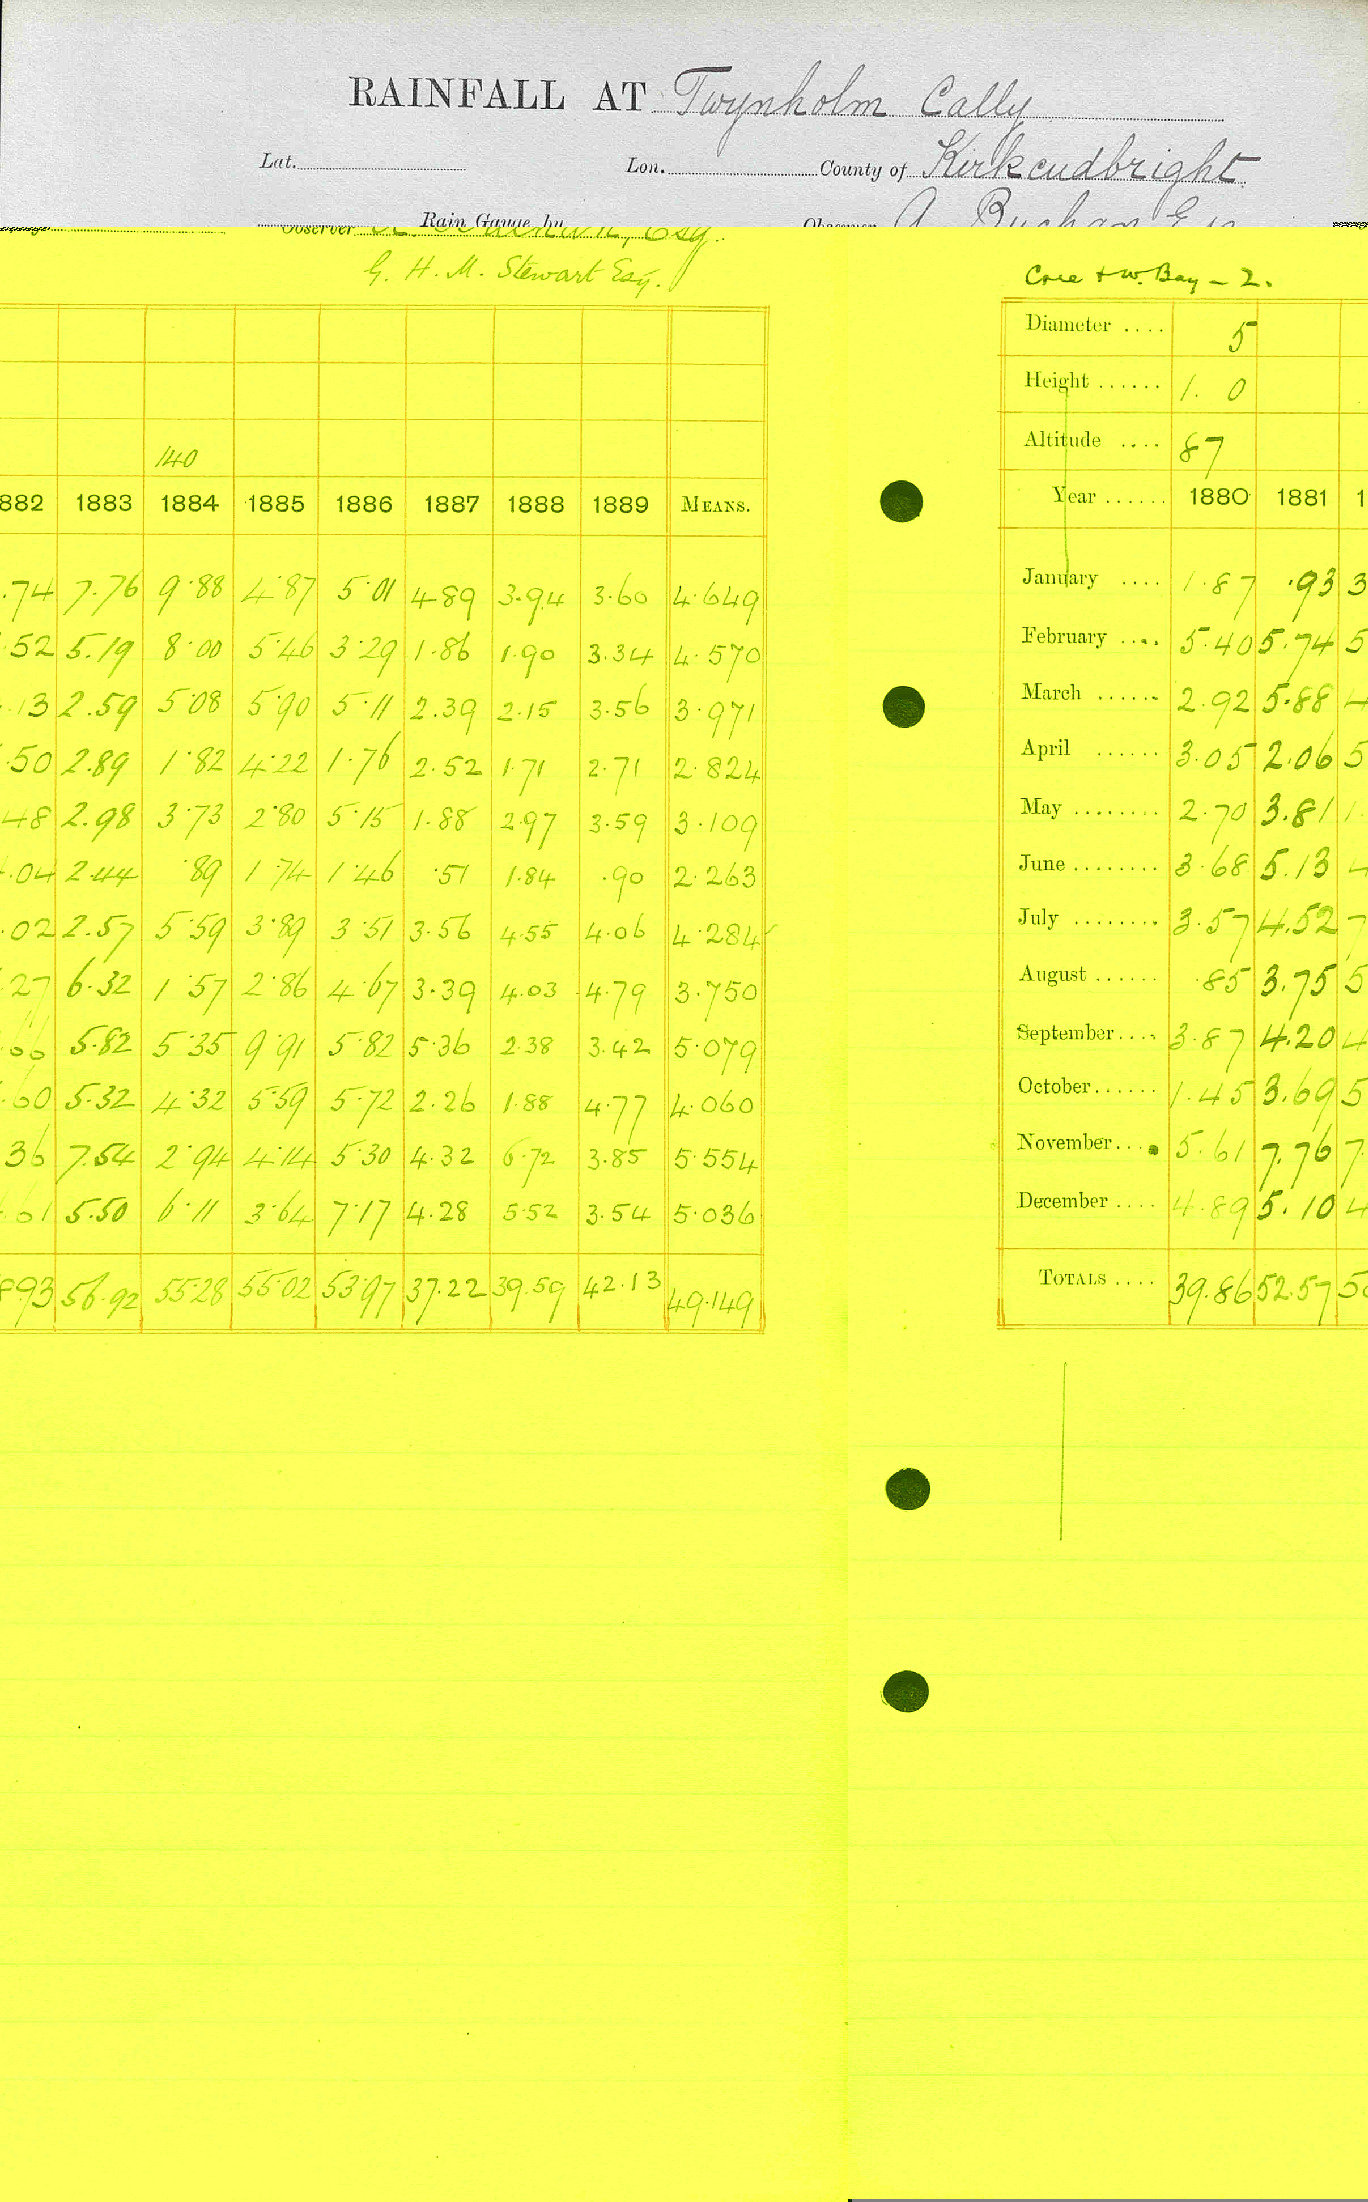 RAINFALL AT Twynholm Cally
Lat. Lon. County of Kirkcudbright
Rain Gauge by A Buchan Esq
Observer Esq.
G. H. M. Stewart Esq.
140
882 1883 1884 1885 1886 1887 1888 1889 MEANS.
.74 7.76 9.88 4.87 5.01 4.89 3.94 3.60 4.649
.52 5.19 8.00 5.46 3.29 1.86 1.90 3.34 4.570
.13 2.59 5.08 5.90 5.11 2.39 2.15 3.56 3.971
.50 2.89 1.82 4.22 1.76 2.52 1.71 2.71 2.824
48 2.98 3.73 2.80 5.15 1.88 2.97 3.59 3.109
.04 2.44 .89 1.74 1.46 .51 1.84 .90 2.263
.02 2.57 5.59 3.89 3.51 3.56 4.55 4.06 4.284
27 6.32 1.57 2.86 4.67 3.39 4.03 4.79 3.750
.66 5.82 5.35 9.91 5.82 5.36 2.38 3.42 5.079
.60 5.32 4.32 5.59 5.72 2.26 1.88 4.77 4.060
36 7.54 2.94 4.14 5.30 4.32 6.72 3.85 5.554
.61 5.50 6.11 3.64 7.17 4.28 5.52 3.54 5.036
8.93 56.92 55.28 55.02 53.97 37.22 39.59 42.13 49.149
& W. Bay - 2.
Diameter .... 5
Height ...... 1. 0
Altitude .... 87
Year ...... 1880 1881 1
January .... 1.87 .93 3
February .... 5.40 5.74 5
March ...... 2.92 5.88 4
April ...... 3.05 2.06 5
May ........ 2.70 3.81 1
June ........ 3.68 5.13 4
July ........ 3.57 4.52 7
August ...... .85 3.75 5
September.... 3.87 4.20 4
October...... 1.45 3.69 5
November.... 5.61 7.76 7.
December .... 4.89 5.10 4
TOTALS .... 39.86 52.57 5